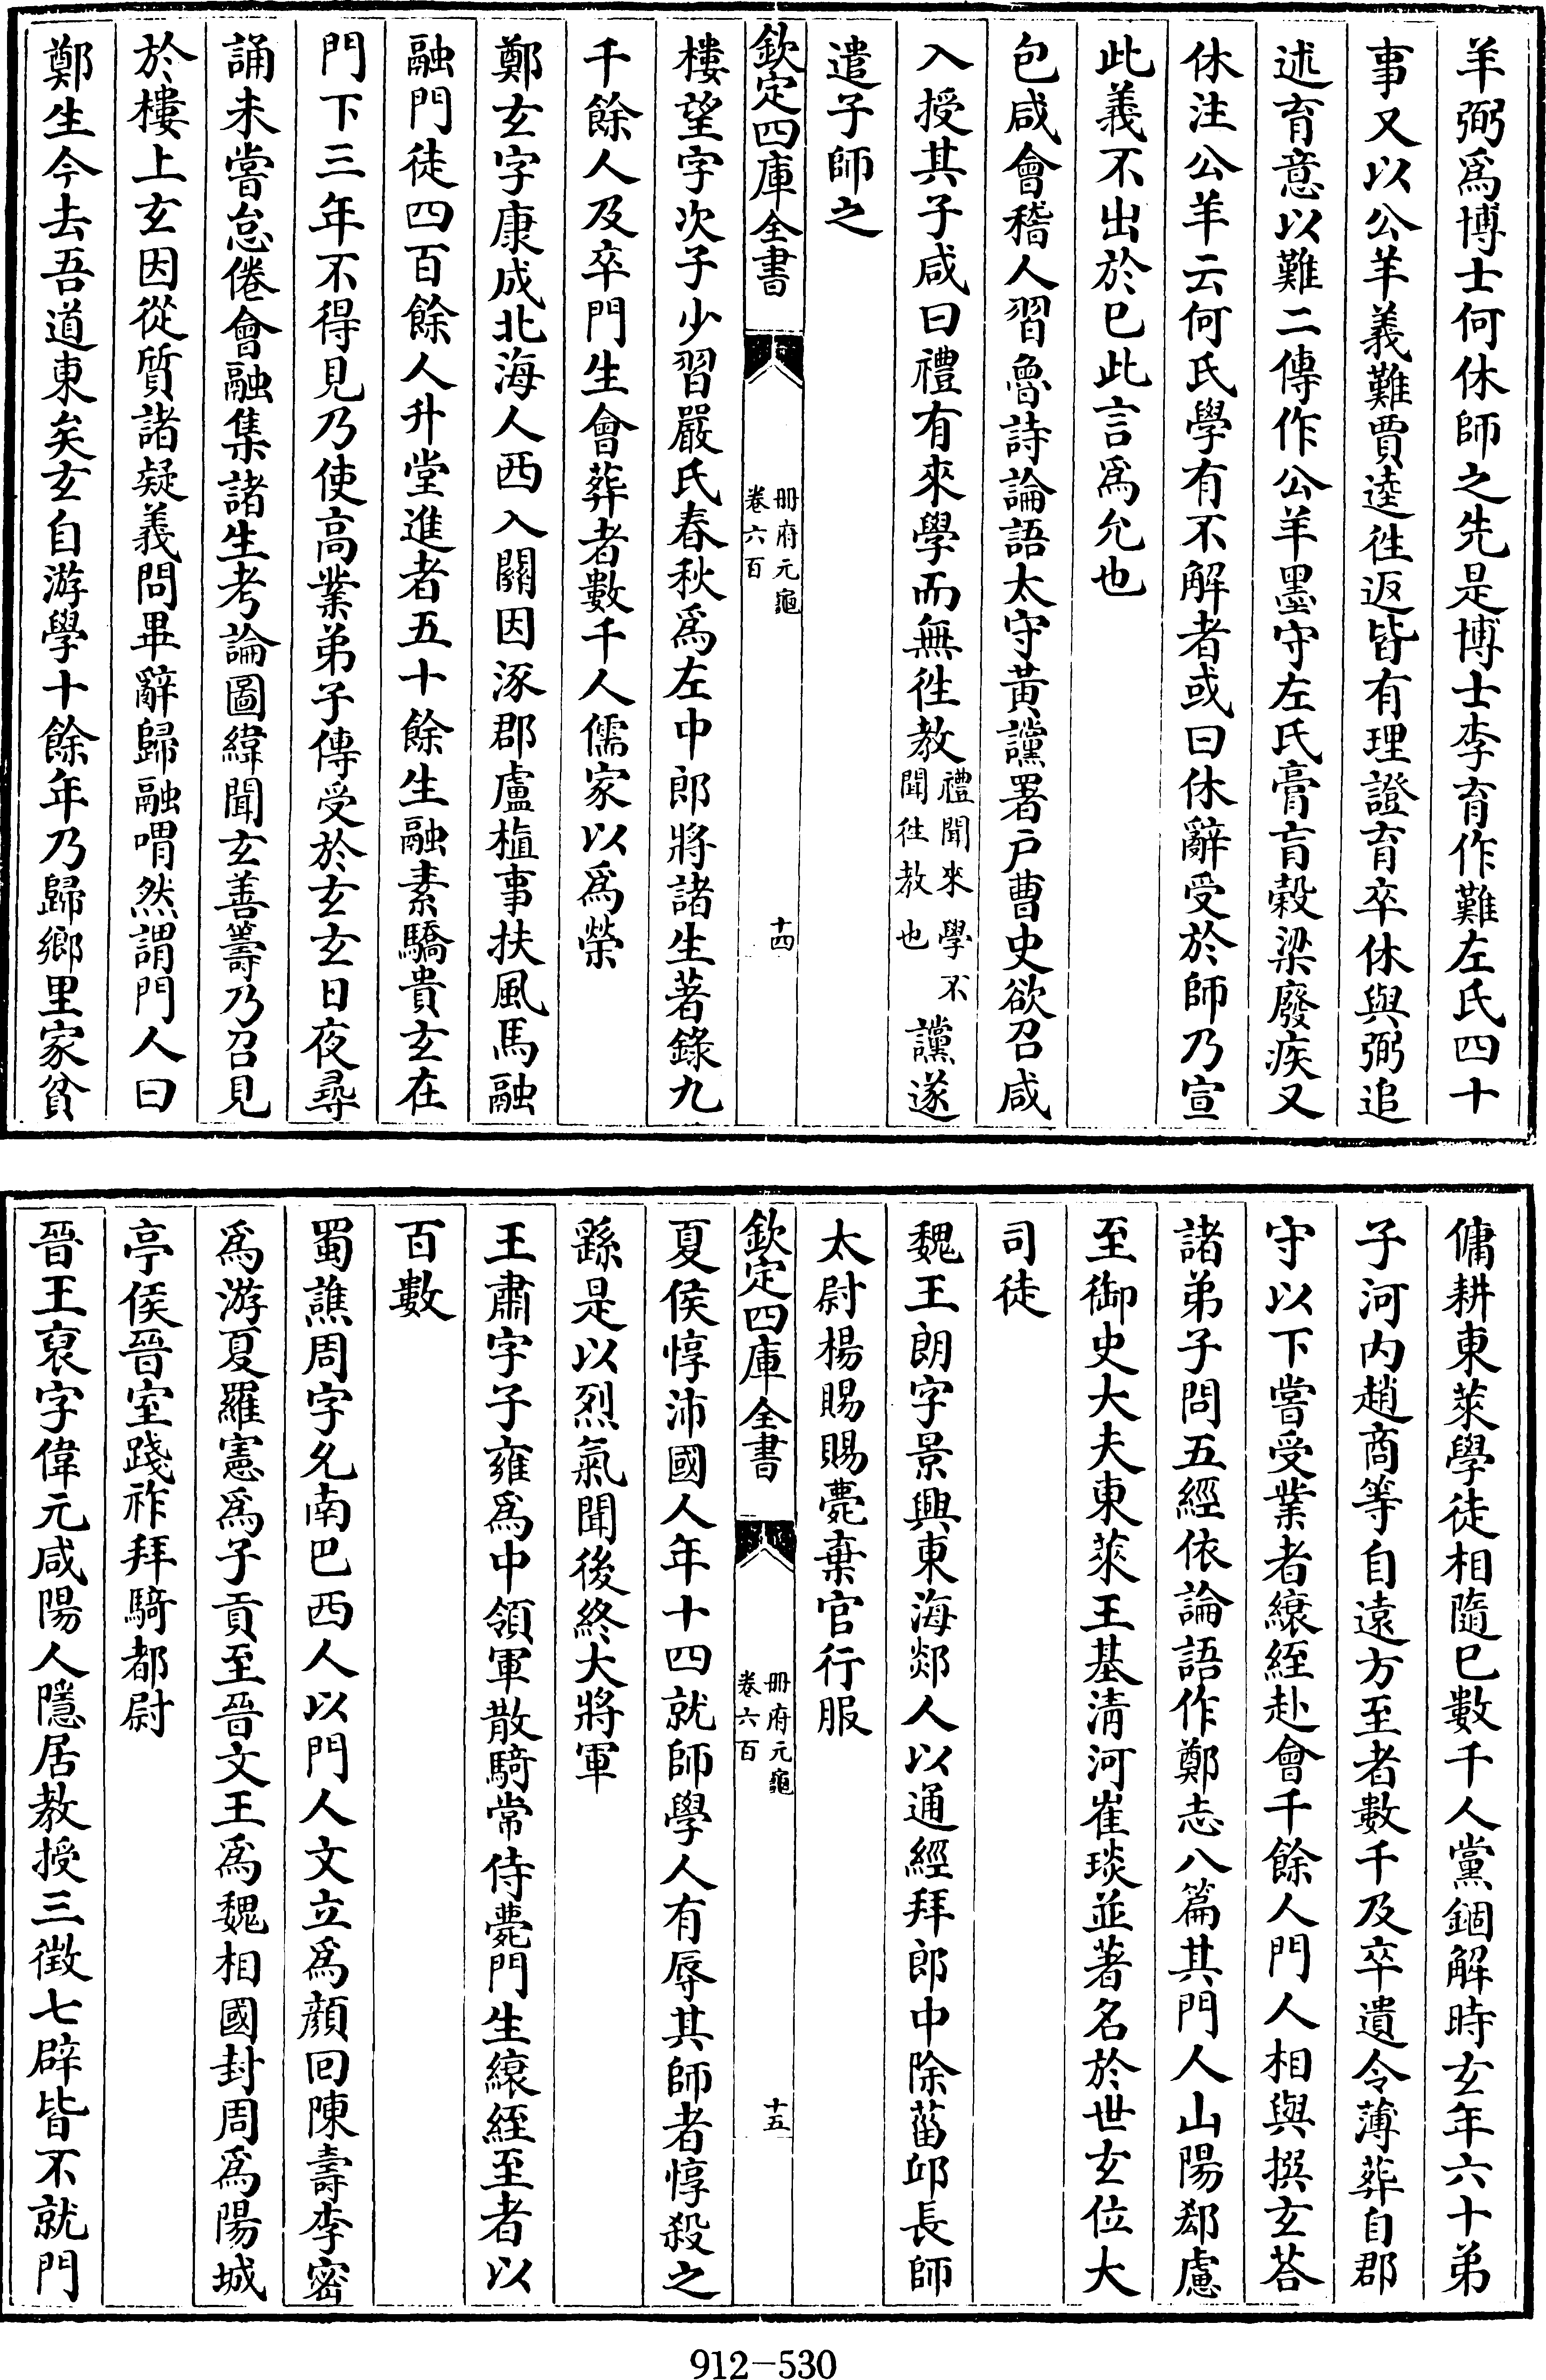 羊弼爲博士何休師之先是博士李育作難左氏四十
事又以公羊義難賈逵徃返皆有理證育卒休與弼追
述育意以難二傳作公羊墨守左氏膏肓榖梁廢疾又
休注公羊云何氏學有不解者或曰休辭受於師乃宣
此義不出於已此言爲允也
包咸會稽人習魯詩論語太守黃讜署戶曹史欲召咸
入授其子咸曰禮有來學而無徃教禮聞來學不聞徃教也讜遂
遣子師之
欽定四庫全書
冊府元龜
卷六百
十四
樓望字次子少習嚴氏春秋爲左中郎將諸生著錄九
千餘人及卒門生會葬者數千人儒家以爲榮
鄭玄字康成北海人西入關因涿郡盧植事扶風馬融
融門徒四百餘人升堂進者五十餘生融素驕貴玄在
門下三年不得見乃使高業弟子傳受於玄玄日夜尋
誦未嘗怠倦會融集諸生考論圖緯聞玄善籌乃召見
於樓上玄因從質諸疑義問畢辭歸融喟然謂門人曰
鄭生今去吾道東矣玄自游學十餘年乃歸鄉里家貧
傭耕東萊學徒相隨巳數千人黨錮解時玄年六十弟
子河内趙商等自遠方至者數千及卒遺令薄葬自郡
守以下嘗受業者縗絰赴會千餘人門人相與撰玄荅
諸弟子問五經依論語作鄭志八篇其門人山陽郄慮
至御史大夫東萊王基淸河崔琰並著名於世玄位大
司徒
魏王朗字景興東海郯人以通經拜郎中除菑邱長師
太尉楊賜賜薨棄官行服
欽定四庫全書
冊府元龜
卷六百
十五
夏侯惇沛國人年十四就師學人有辱其師者惇殺之
繇是以烈氣聞後終大將軍
王肅字子雍爲中領軍散騎常侍薨門生縗絰至者以
百數
蜀譙周字允南巴西人以門人文立爲顔回陳壽李密
爲游夏羅憲爲子貢至晉文王爲魏相國封周爲陽城
亭侯晉室踐祚拜騎都尉
晉王裒字偉元咸陽人隱居教授三徴七辟皆不就門
912-530